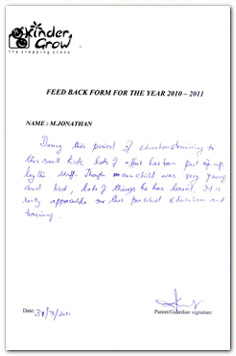 Kinder
Grow
the stepping stone
FEED BACK FORM FOR THE YEAR 2010 – 2011
NAME : M.JONATHAN
During this period of Education & training to
this small kids lots of effort has been put up
by the staff. Though child was very young
and kid, lots of things he has learnt. It is
really appreciable for this preschool Education and
training.
Date:
Parent/Guardian signature